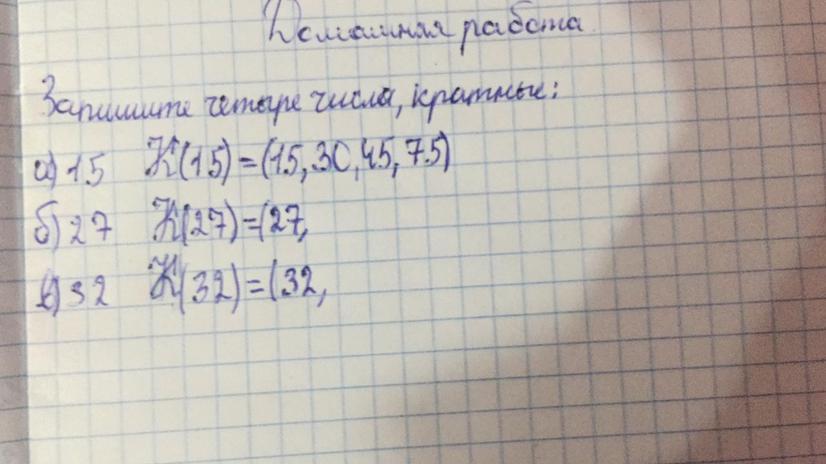 Домашняя работа
Запишите четыре числа, кратные:
а) 15 К(15)=(15,30,45,75)
б) 27 К(27)=(27,
в) 32 К(32)=(32,